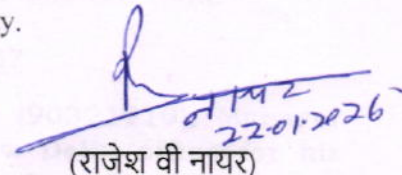 y.
नायर
22.01.2026
(राजेश वी नायर)